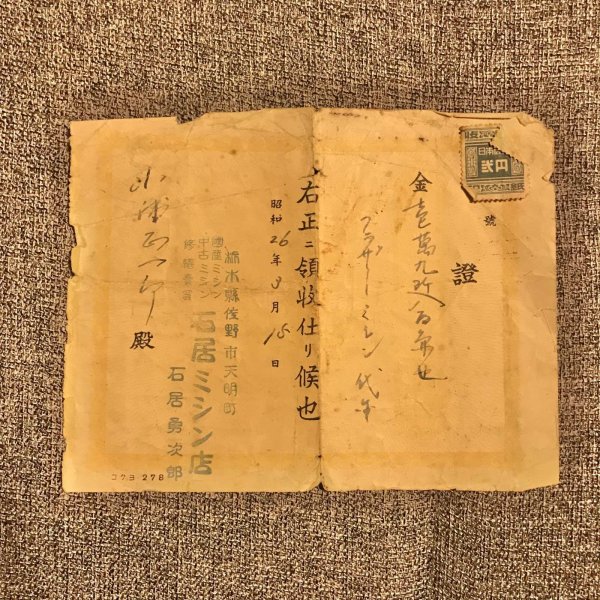 證
號
金壱萬九阡八百円也
ブラザーミシン代金
右正ニ領收仕リ候也
昭和26年3月15日
栃木縣佐野市天明町
國産ミシン
中古ミシン
石居ミシン店
石居勇次郎
殿
コクヨ 278
貳円